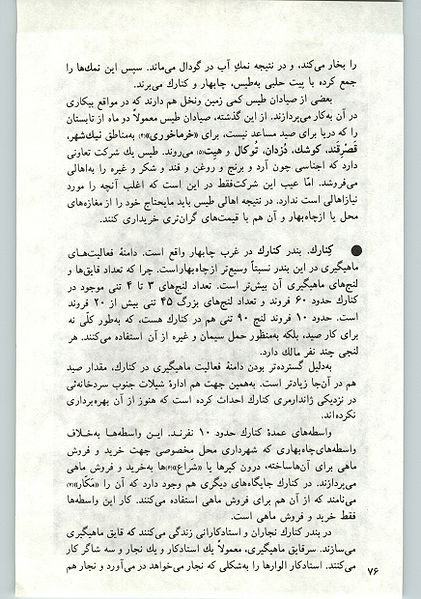 را بخار می‌کند، و در نتیجه نمك آب در گودال می‌ماند. سپس این نمك‌ها را
جمع کرده با پیت حلبی به‌طیس، چابهار و کنارك می‌برند.
بعضی از صیادان طیس کمی زمین ونخل هم دارند که در مواقع بیکاری
در آن به‌کار می‌پردازند. از این گذشته، صیادان طیس معمولاً دو ماه از تابستان
را که دریا برای صید مساعد نیست، برای «خرماخوری»(۴) به‌مناطق نیك‌شهر،
قصرقند، کوشك، دُزدان، تُوکال و هیت(۵) می‌روند. طیس یك شرکت تعاونی
دارد که اجناسی چون آرد و برنج و روغن و قند و شکر و غیره را به‌اهالی
می‌فروشد. امّا عیب این شرکت‌فقط در این است که اغلب آنچه را مورد
نیازاهالی است ندارد. در نتیجه اهالی طیس باید مایحتاج خود را از مغازه‌های
محل یا ازچاه‌بهار و آن هم با قیمت‌های گران‌تری خریداری کنند.
● کنارك. بندر کنارك در غرب چابهار واقع است. دامنهٔ فعالیت‌های
ماهیگیری در این بندر نسبتاً وسیع‌تر ازچاه‌بهاراست. چرا که تعداد قایق‌ها و
لنج‌های ماهیگیری آن بیش‌تر است. تعداد لنج‌های ۳ تا ۴ تنی موجود در
کنارك حدود ۶۰ فروند و تعداد لنج‌های بزرگ ۴۵ تنی بیش از ۲۰ فروند
است. حدود ۱۰ فروند لنج ۹۰ تنی هم در کنارك هست، که به‌طور کلّی نه
برای کار صید، بلکه به‌منظور حمل سیمان و غیره از آن استفاده می‌کنند. هر
لنجی چند نفر مالك دارد.
به‌دلیل گسترده‌تر بودن دامنهٔ فعالیت ماهیگیری در کنارك، مقدار صید
هم در آن‌جا زیادتر است. به‌همین جهت هم ادارهٔ شیلات جنوب سردخانه‌ئی
در نزدیکی ژاندارمری کنارك احداث کرده است که هنوز از آن بهره‌برداری
نکرده‌اند.
واسطه‌های عمدهٔ کنارك حدود ۱۰ نفرند. این واسطه‌ها به‌خلاف
واسطه‌های‌چاه‌بهاری که شهرداری محل مخصوصی جهت خرید و فروش
ماهی برای آن‌هاساخته، درون کپرها یا «شراع»(۶)ها به‌خرید و فروش ماهی
می‌پردازند. در کنارك جایگاه‌های دیگری هم وجود دارد که آن را «مَکّار»(۷)
می‌نامند که از آن هم برای فروش ماهی استفاده می‌کنند. کار این واسطه‌ها
فقط خرید و فروش ماهی است.
در بندر کنارك نجاران و استادکارانی زندگی می‌کنند که قایق ماهیگیری
می‌سازند. سرقایق ماهیگیری، معمولاً یك استادکار و یك نجار و سه شاگر کار
می‌کنند. استادکار الوارها را به‌شکلی که نجار می‌خواهد در می‌آورد و نجار هم
۷۶